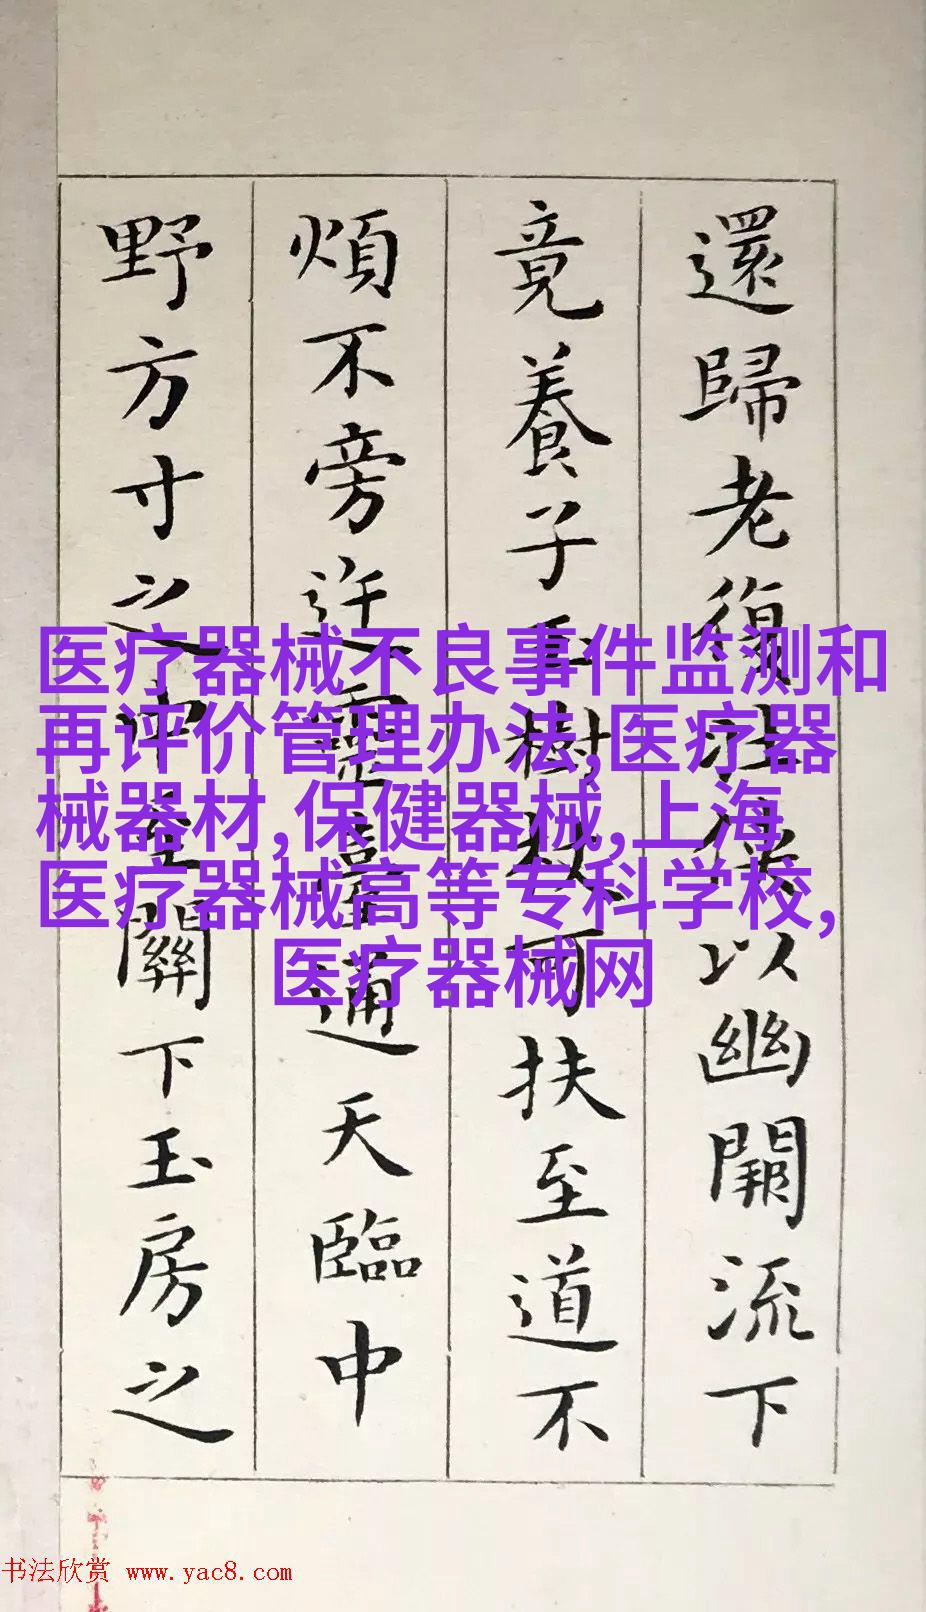 還歸老復壯以幽闕流下
竟養子玉樹杖可扶至道不
煩不旁迕靈臺通天臨中
野方寸之中至關下玉房之
医疗器械不良事件监测和
再评价管理办法,医疗器
械器材,保健器械,上海
医疗器械高等专科学校,
医疗器械网
书法欣赏 www.yac8.com